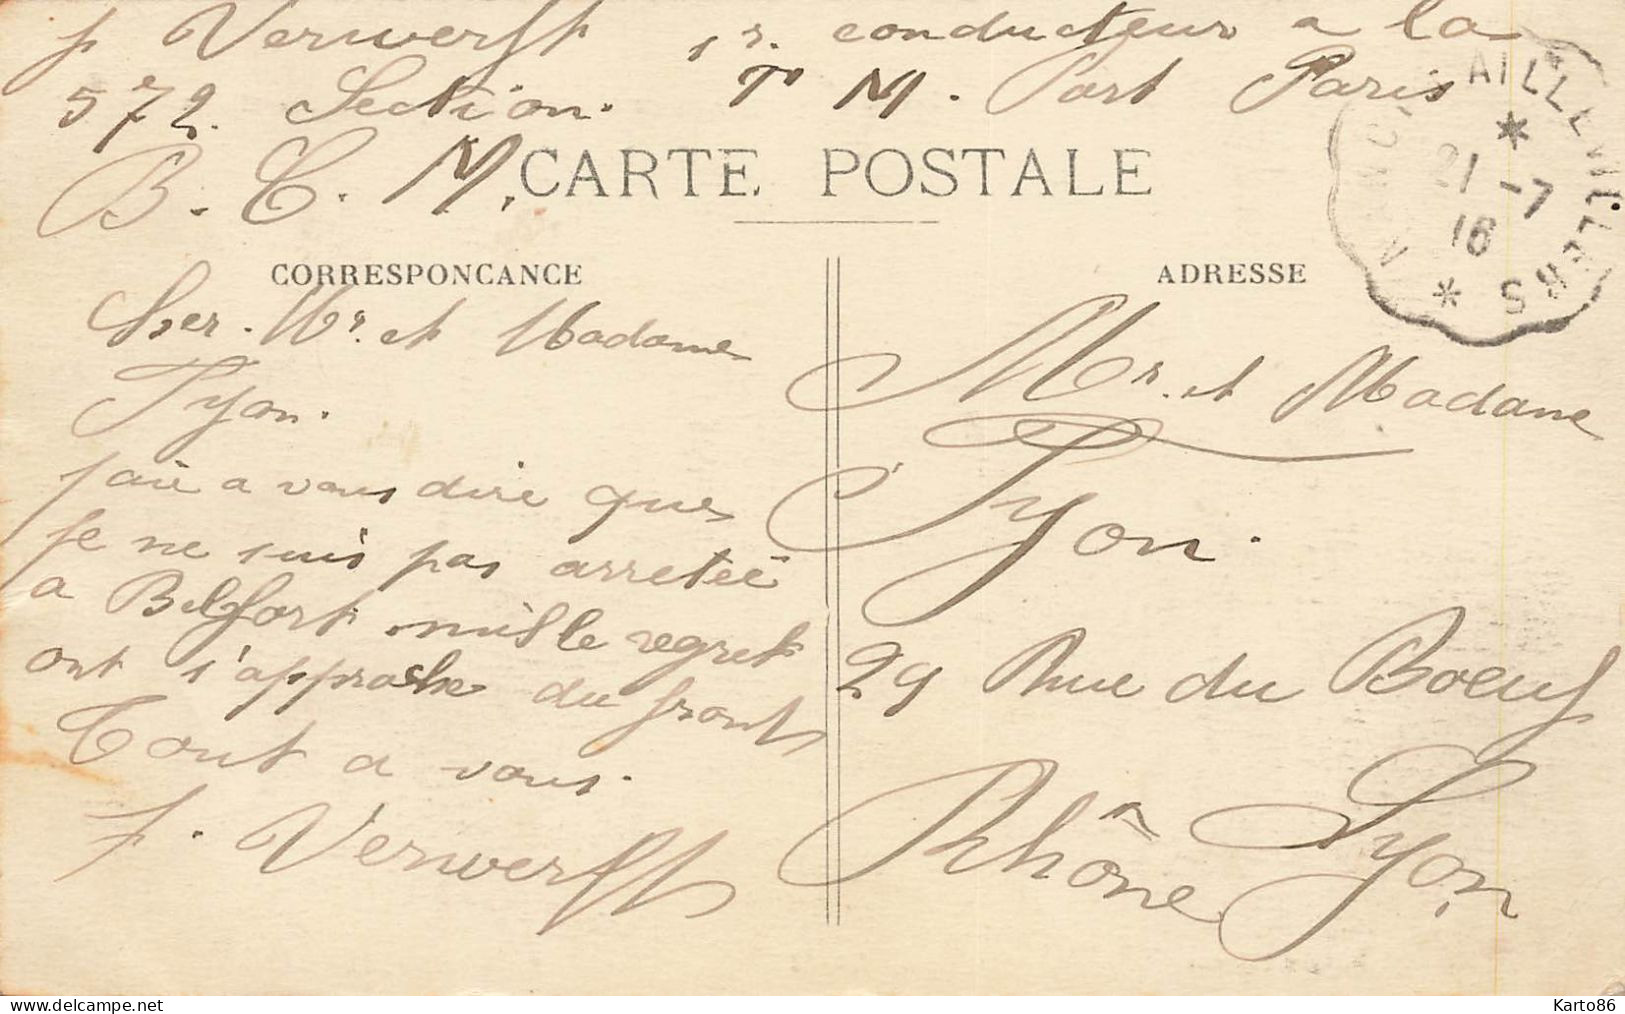 f Verwerft 1r. conducteur a la
572. Section. T M. Part Paris
B. C. M.
CARTE POSTALE
AILLEVILLERS
21 -7
16
CORRESPONCANCE
Cher. Mr. et Madame
Tyon.
faie a vous dire que
je ne suis pas arretée
a Belfort mille regret
ont s'approche du front
Tout a vous.
f. Verwerft
ADRESSE
Mr. et Madame
Tyon.
29 Rue du Boeuf
Lyon
Rhône
Karto86